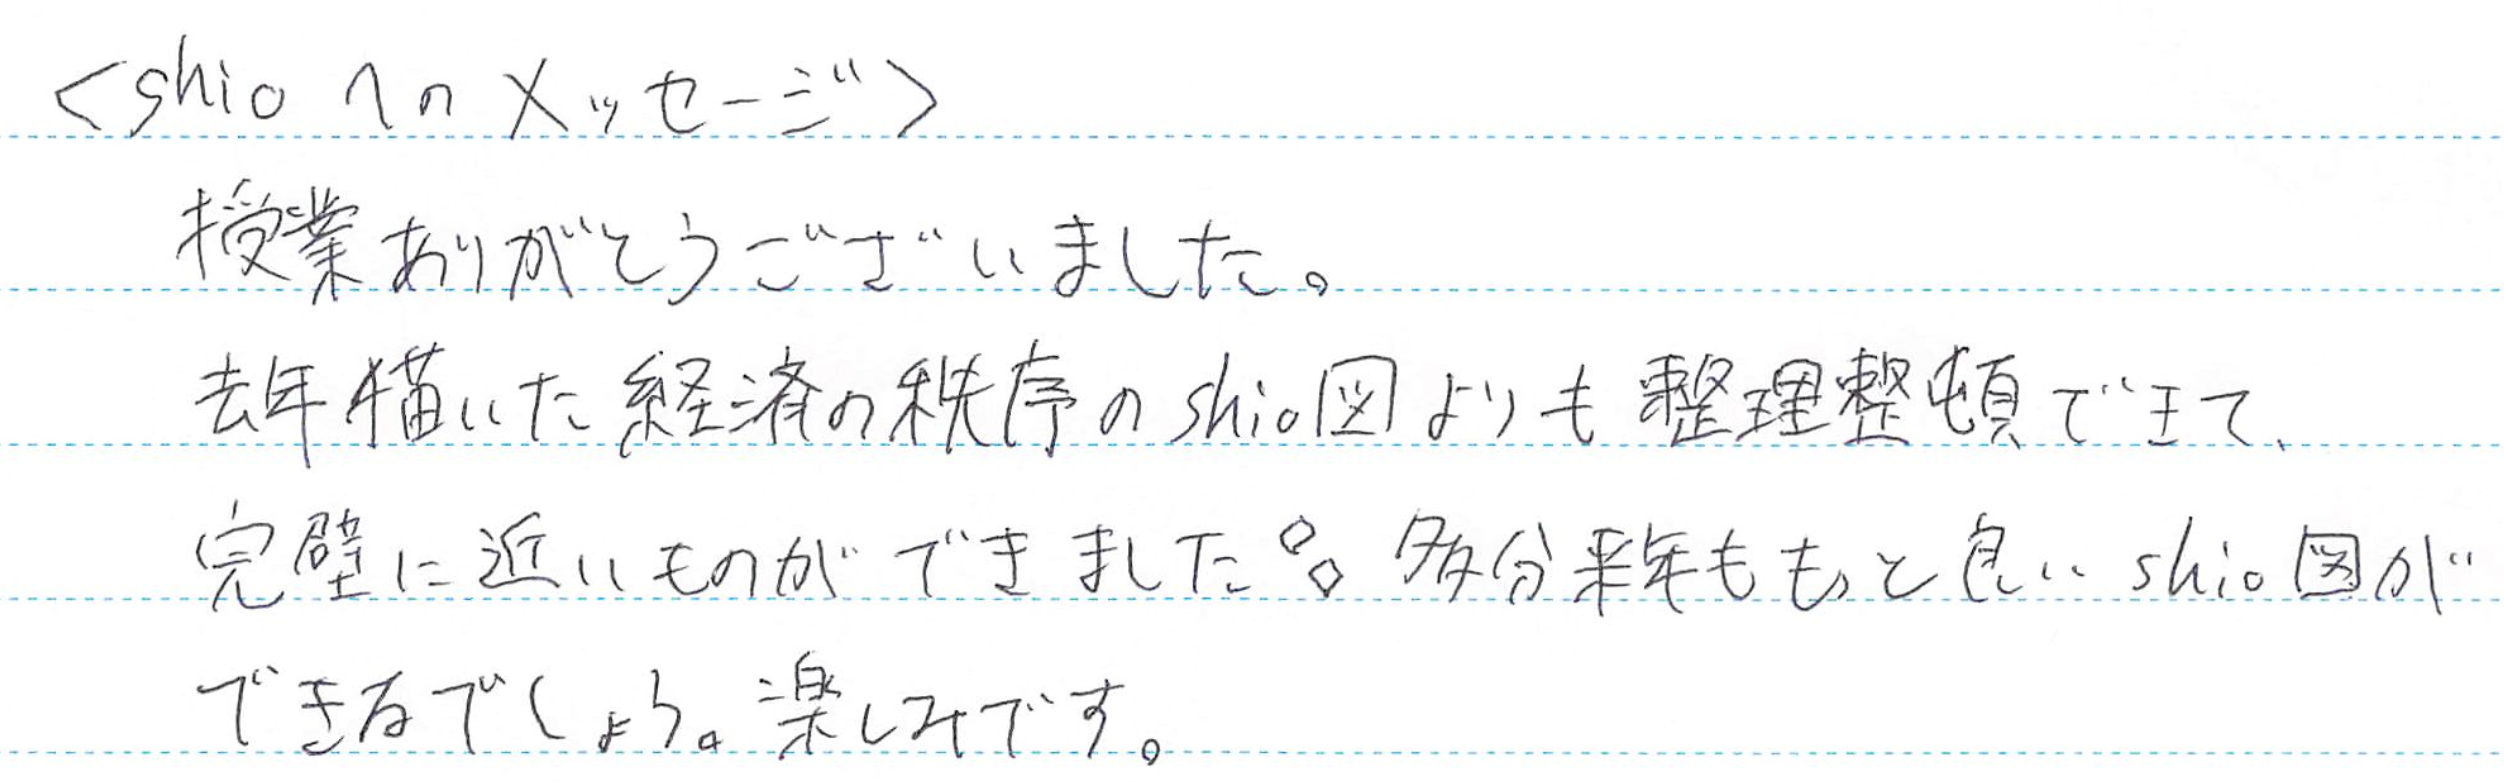 <shioへのメッセージ>
授業ありがとうございました。
去年描いた経済の秩序のshio図よりも整理整頓できて、
完璧に近いものができました。多分来年ももっと良いshio図が
できるでしょう。楽しみです。